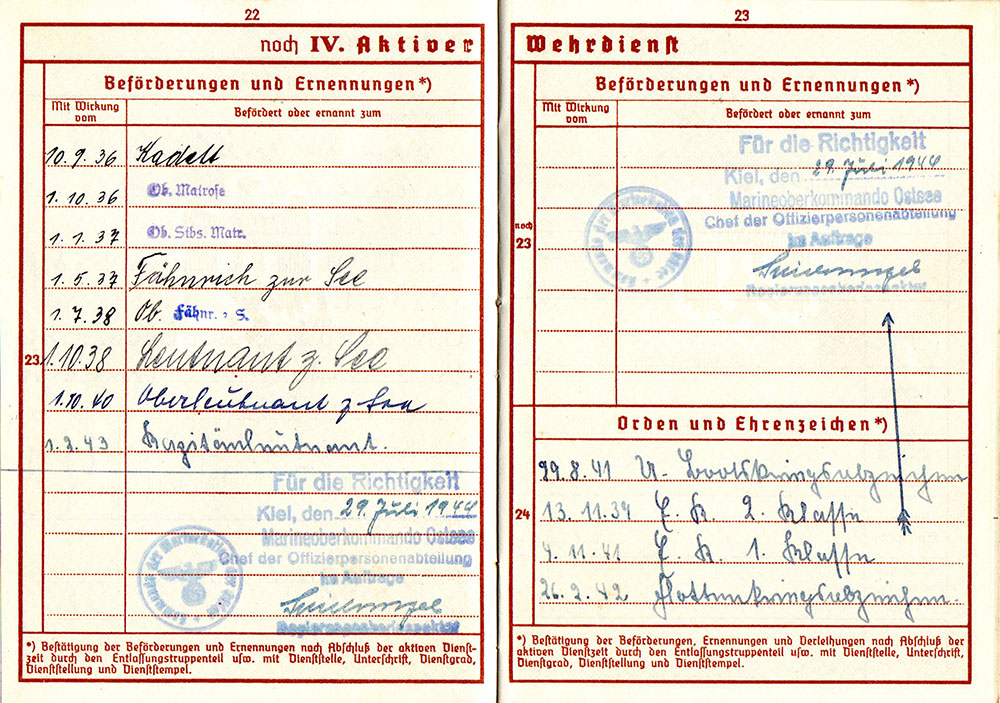 22
noch IV. Aktiver
Beförderungen und Ernennungen *)
Mit Wirkung vom
Befördert oder ernannt zum
10.9.36 Kadett
1.10.36 Ob. Matrose
1.1.37 Ob. Stbs. Matr.
1.5.37 Fähnrich zur See
1.7.38 Ob. Fähnr. z. S.
23. 1.10.38 Leutnant z. See
1.10.40 Oberleutnant z See
1.2.43 Kapitänleutnant.
Für die Richtigkeit
Kiel, den 29. Juli 1944
Marineoberkommando Ostsee
Chef der Offizierpersonenabteilung
im Auftrage
Regierungsoberinspektor
*) Bestätigung der Beförderungen und Ernennungen nach Abschluß der aktiven Dienst-
zeit durch den Entlassungstruppenteil usw. mit Dienststelle, Unterschrift, Dienstgrad,
Dienststellung und Dienststempel.
23
Wehrdienst
Beförderungen und Ernennungen *)
Mit Wirkung vom
Befördert oder ernannt zum
Für die Richtigkeit
Kiel, den 29. Juli 1944
Marineoberkommando Ostsee
Chef der Offizierpersonenabteilung
im Auftrage
Regierungsoberinspektor
noch 23
Orden und Ehrenzeichen *)
29.8.41 U-Bootskriegsabzeichen
24 13.11.39 E. K. 2. Klasse
4.11.41 E. K. 1. Klasse
26.2.42 Flottenkriegsabzeichen.
*) Bestätigung der Beförderungen, Ernennungen und Verleihungen nach Abschluß der
aktiven Dienstzeit durch den Entlassungstruppenteil usw. mit Dienststelle, Unterschrift,
Dienstgrad, Dienststellung und Dienststempel.